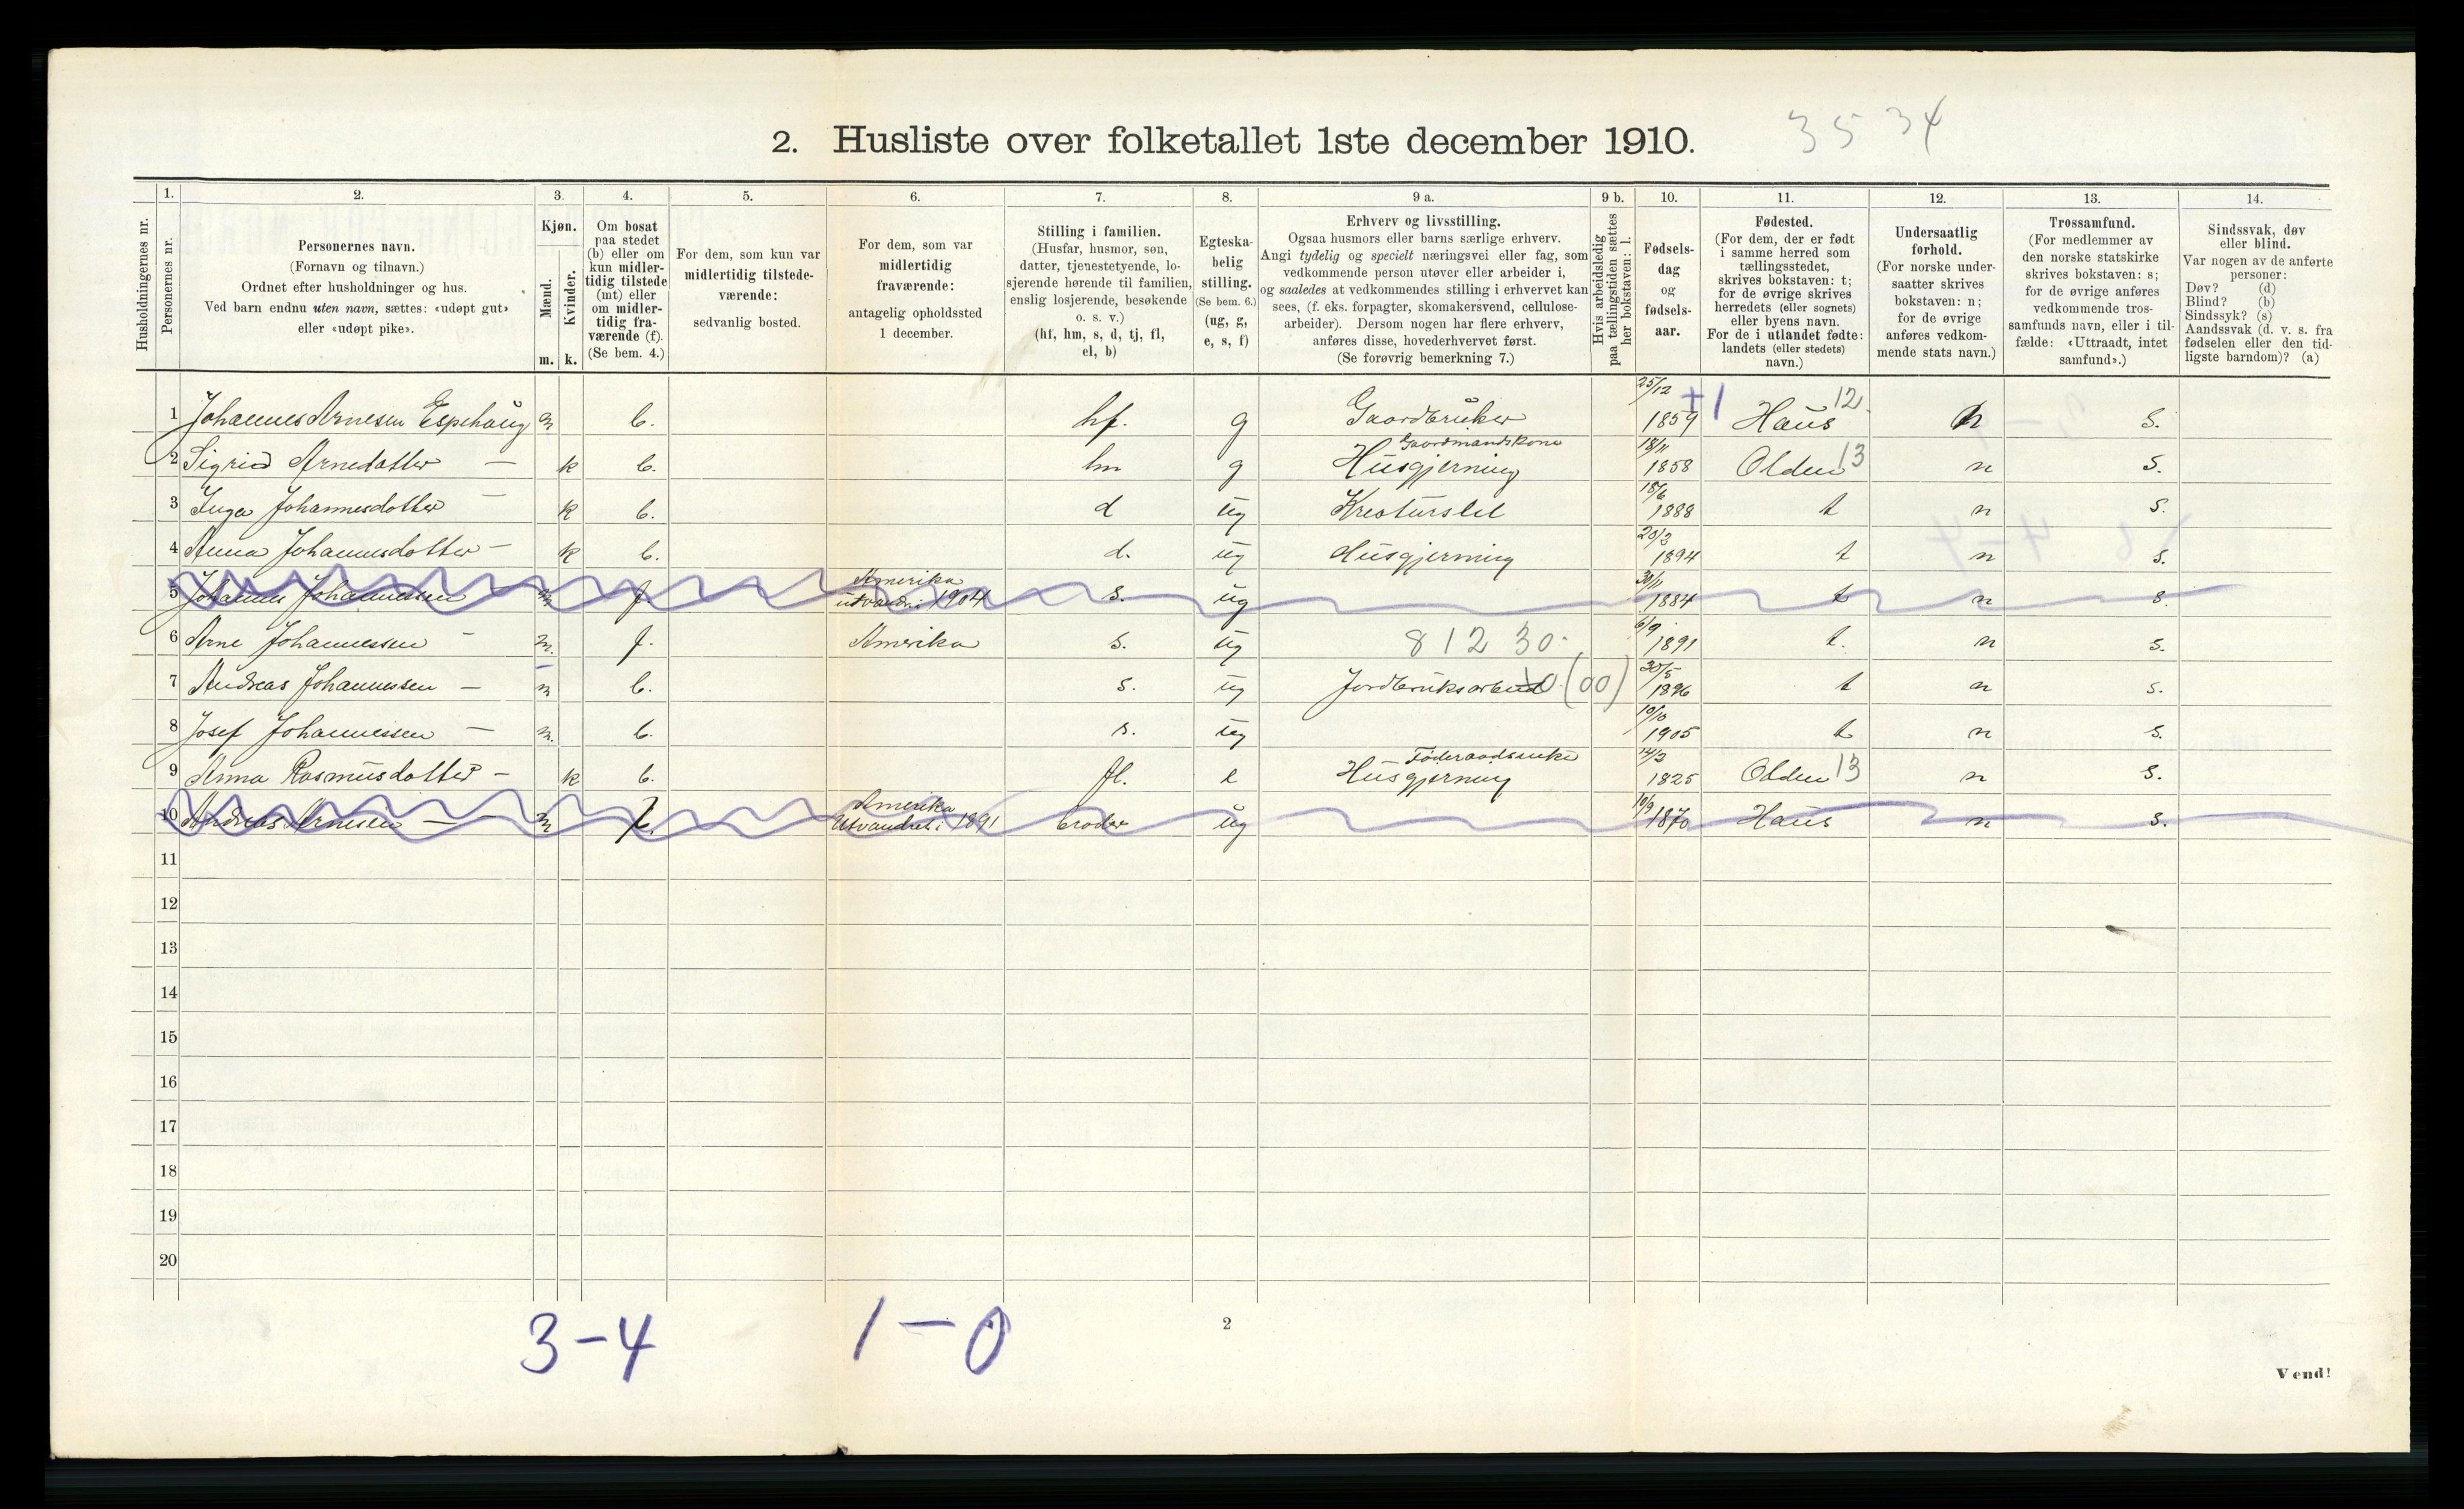 2. Husliste over folketallet 1ste december 1910.
35 34
Husholdningernes nr.
1.
Personernes nr.
2.
Personernes navn.
(Fornavn og tilnavn.)
Ordnet efter husholdninger og hus.
Ved barn endnu uten navn, sættes: «udøpt gut»
eller «udøpt pike».
3.
Kjøn.
Mænd.
m.
Kvinder.
k.
4.
Om bosat
paa stedet
(b) eller om
kun midler-
tidig tilstede
(mt) eller
om midler-
tidig fra-
værende (f).
(Se bem. 4.)
5.
For dem, som kun var
midlertidig tilstede-
værende:
sedvanlig bosted.
6.
For dem, som var
midlertidig
fraværende:
antagelig opholdssted
1 december.
7.
Stilling i familien.
(Husfar, husmor, søn,
datter, tjenestetyende, lo-
sjerende hørende til familien,
enslig losjerende, besøkende
o. s. v.)
(hf, hm, s, d, tj, fl,
el, b)
8.
Egteska-
belig
stilling.
(Se bem. 6.)
(ug, g,
e, s, f)
9 a.
Erhverv og livsstilling.
Ogsaa husmors eller barns særlige erhverv.
Angi tydelig og specielt næringsvei eller fag, som
vedkommende person utøver eller arbeider i,
og saaledes at vedkommendes stilling i erhvervet kan
sees, (f. eks. forpagter, skomakersvend, cellulose-
arbeider). Dersom nogen har flere erhverv,
anføres disse, hovederhvervet først.
(Se forøvrig bemerkning 7.)
9 b.
Hvis arbeidsledig
paa tællingstiden sættes
her bokstaven: l.
10.
Fødsels-
dag
og
fødsels-
aar.
11.
Fødested.
(For dem, der er født
i samme herred som
tællingsstedet,
skrives bokstaven: t;
for de øvrige skrives
herredets (eller sognets)
eller byens navn.
For de i utlandet fødte:
landets (eller stedets)
navn.)
12.
Undersaatlig
forhold.
(For norske under-
saatter skrives
bokstaven: n;
for de øvrige
anføres vedkom-
mende stats navn.)
13.
Trossamfund.
(For medlemmer av
den norske statskirke
skrives bokstaven: s;
for de øvrige anføres
vedkommende tros-
samfunds navn, eller i til-
fælde: «Uttraadt, intet
samfund».)
14.
Sindssvak, døv
eller blind.
Var nogen av de anførte
personer:
Døv? (d)
Blind? (b)
Sindssyk? (s)
Aandssvak (d. v. s. fra
fødselen eller den tid-
ligste barndom)? (a)
1 Johannes Arnesen Espehaug m b. hf. g Gaardbruker 25/12 1859 +1 Haus 12 n s.
2 Sigrid Arnedatter — k b. hm g Gaardmandskone Husgjerning 18/11 1858 Olden 13 n s.
3 Inga Johannesdatter — k b. d ug Kreaturstel 18/6 1888 t n s.
4 Anna Johannesdatter — k b. d. ug Husgjerning 20/3 1894 t n s.
5 Johannes Johannessen m f. Amerika utvandr. 1904 s. ug 30/11 1884 t n s.
6 Arne Johannessen — m. f. Amerika s. ug 8 12 30 6/9 1891 t. n s.
7 Andreas Johannessen — m b. s. ug Jordbruksarbeid 0 (00) 30/5 1896 t n s.
8 Josef Johannessen — m. b. s. ug 10/10 1905 t n s.
9 Anna Rasmusdatter — k b. fl. e Føderaadsenke Husgjerning 14/3 1825 Olden 13 n s.
10 Andreas Arnesen — m f. Amerika Utvandret i 1891 broder ug 10/9 1870 Haus n s.
11
12
13
14
15
16
17
18
19
20
3-4 1-0
2
Vend!